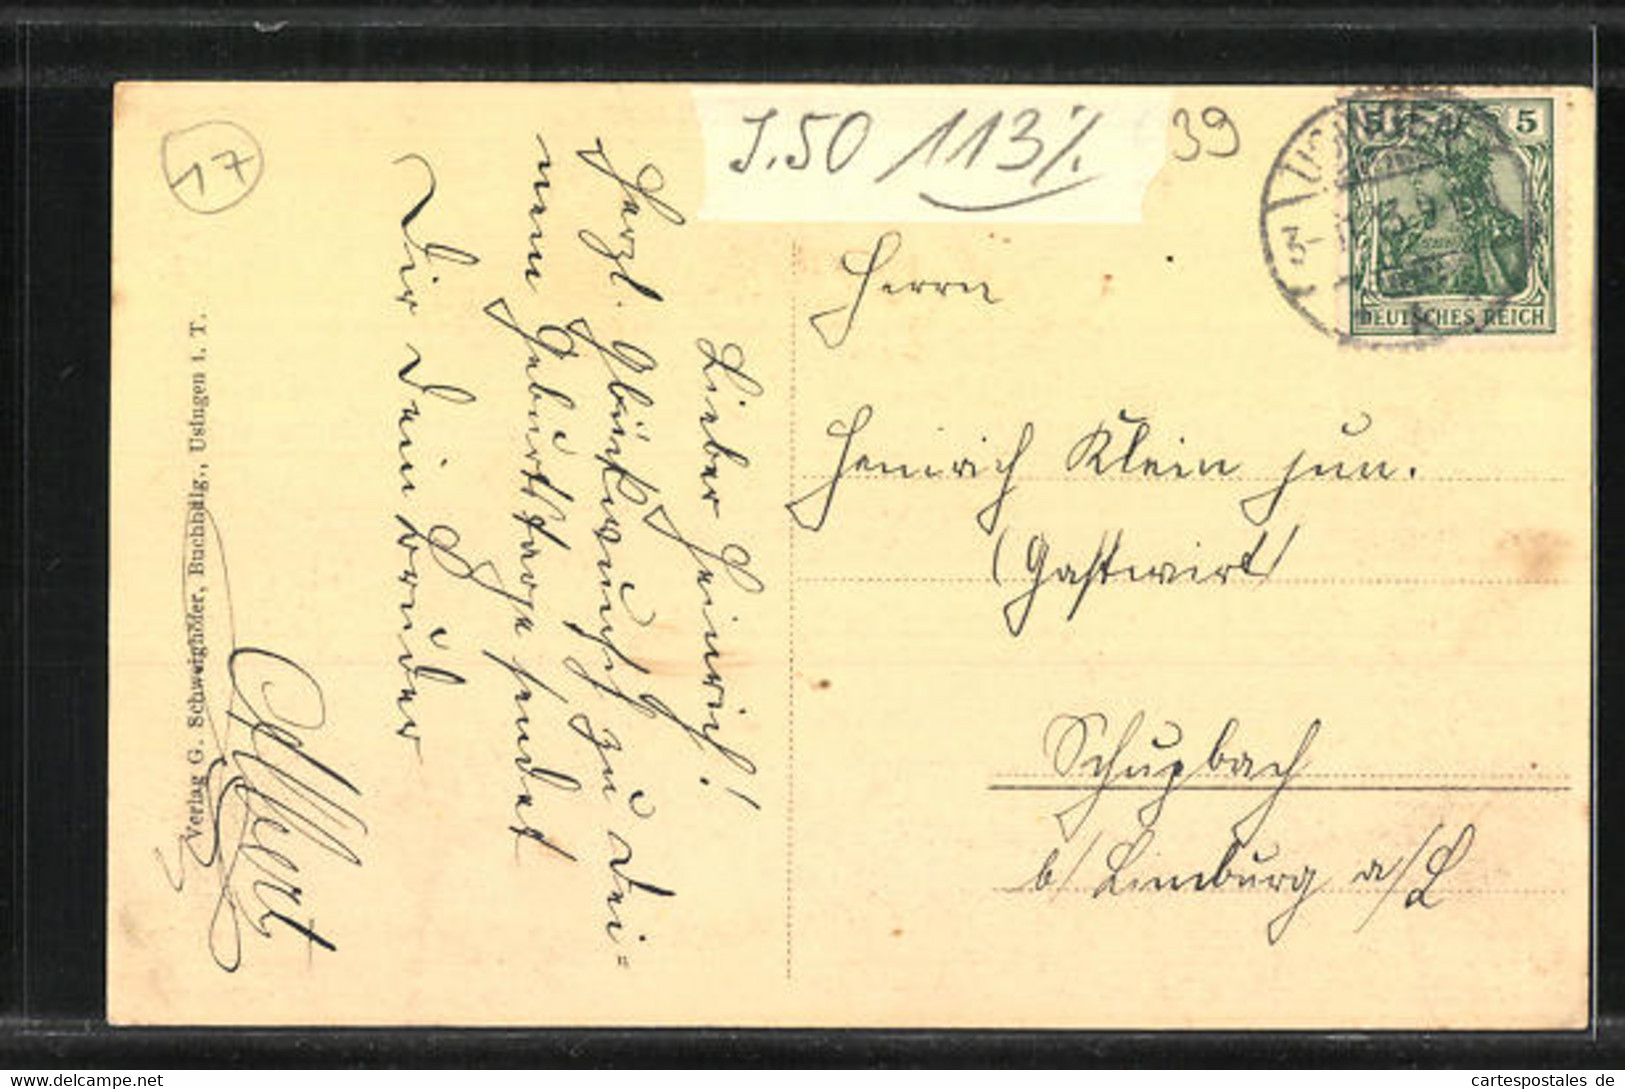 17
J.50 113%
39
USINGEN
5
DEUTSCHES REICH
Lieber Heinrich!
Herzl. Glückwunsch zu Dei=
nem Geburtstage sendet
Dir dein Bruder
Albert
Verlag G. Schweighöfer, Buchhdlg., Usingen i. T.
Herrn
Heinrich Klein jun.
(Gastwirt)
Schupbach
b/ Limburg a/L
cartespostales de